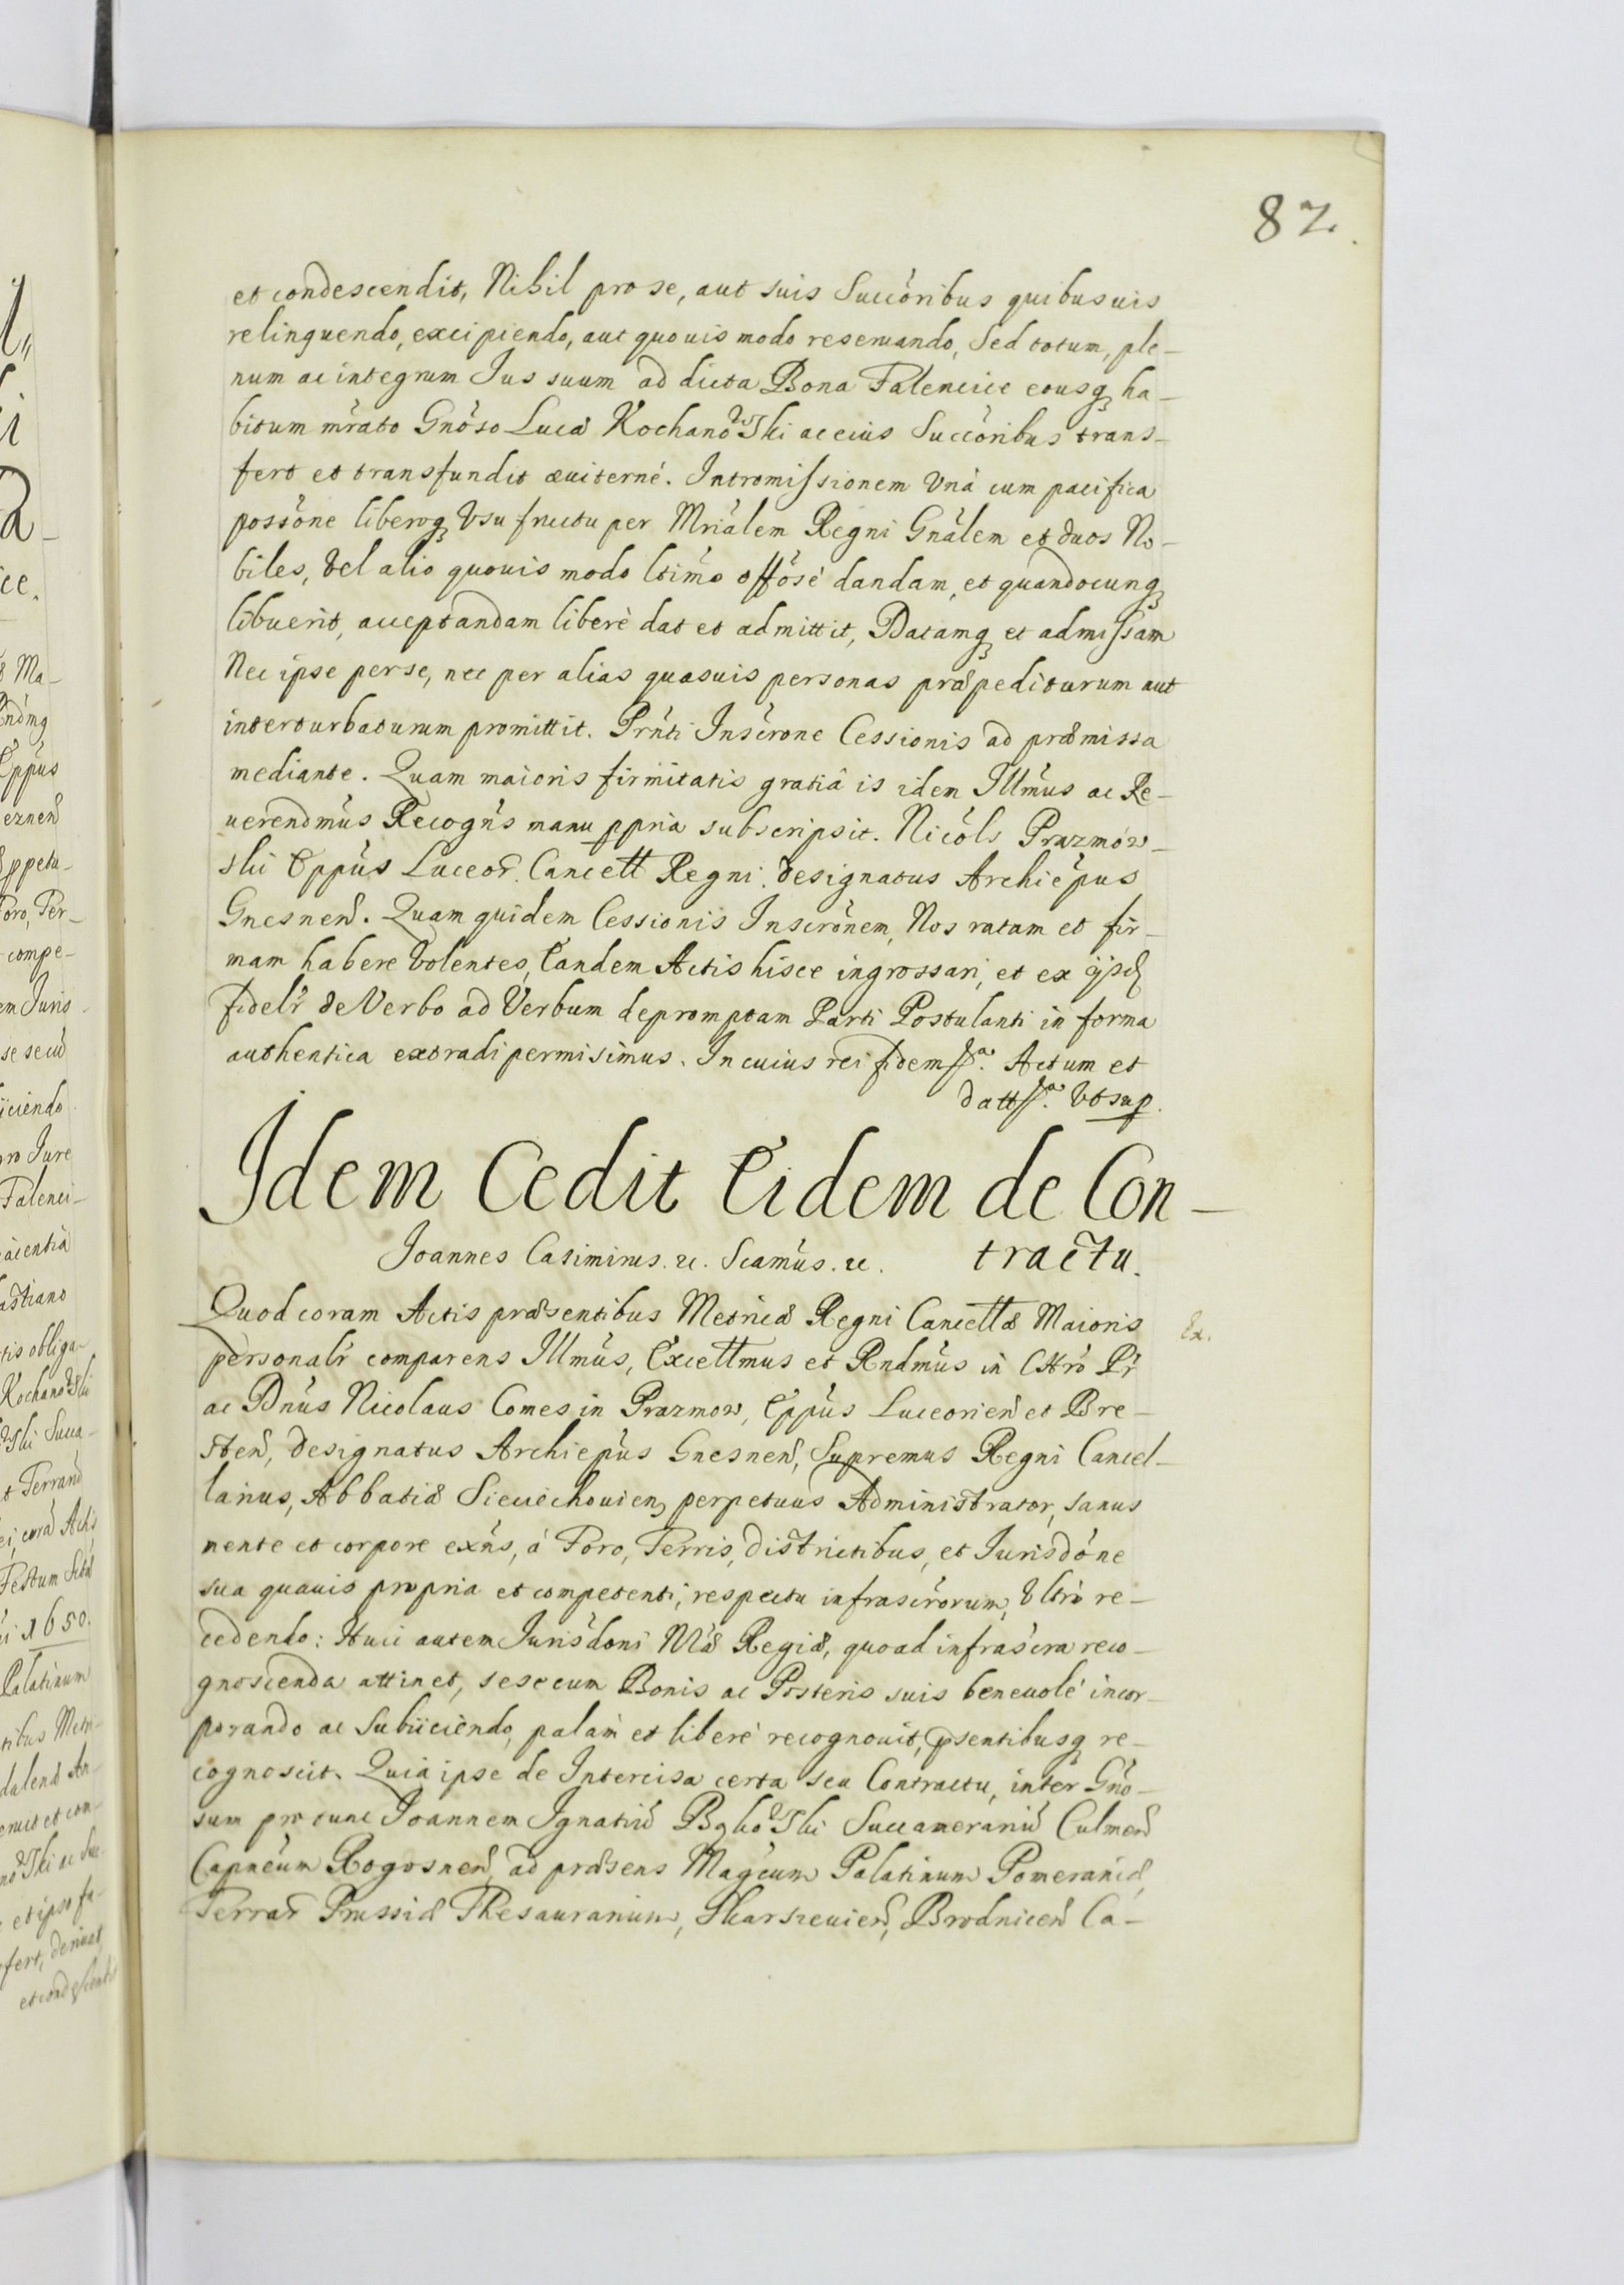 82
et condescendit, Nihil pro se, aut suis Succóribus quibusuis
relinquendo, excipiendo, aut quouis modo reseruando, Sed totum, ple-
num ac integrum Jus suum ad dicta Bona Falencice eousq ha-
bitum mrato Gnóso Lucæ Kochanowski ac eius Succóribus trans-
fert et transfundit æuiterné. Intromissionem Vnà cum pacifica
possóne liberoq Vsu fructu per Mriálem Regni Gnálem et duos No-
biles, Vel alio quouis modo ltimo offósé dandam, et quandocunq
libuerit, acceptandam liberè dat et admittit, Datamq et admissam
Nec ipse per se, nec per alias quasuis personas præpediturum aut
interturbaturum promittit. Prnti Inscrone Cessionis ad præmissa
mediante. Quam maioris firmitatis gratiâ is idem Illmus ac Re-
uerendmus Recogns manu ppria subscripsit. Nicols Prazmow-
ski Eppus Luceor. Cancell Regni designatus Archiepus
Gnesnen. Quam quidem Cessionis Inscrónem, Nos ratam et fir-
mam habere Volentes, Eandem Actis hisce ingrossari, et ex ijsd
fidelr de Verbo ad Verbum depromptam Parti Postulanti in forma
authentica extradi permisimus. In cuius rei fidem Actum et
datt Vt sup.
Idem Cedit Eidem de Con-
tractu.
Joannes Casimirus. &. Seamus. &.
Quod coram Actis præsentibus Metricæ Regni Cancellæ Maioris
Ex.
personalr comparens Illmus, Excellmus et Rndmus in Chro Pr
ac Dnus Nicolaus Comes in Prazmow, Eppus Luceorien et Bre-
sten, designatus Archiepus Gnesnen, Supremus Regni Cancel-
larius, Abbatiæ Sieciechouien perpetuus Administrator, sanus
mente et corpore exns, á Foro, Terris, districtibus, et Jurisdóne
sua quauis propria et competenti, respectu infrascrorum, Vltrò re-
cedendo: Huic autem Jurisdoni Mtæ Regiæ, quoad infrascra reco-
gnoscenda attinet, sese cum Bonis ac Posteris suis beneuolé incor-
porando ac Subiiciendo, palàm et liberé recognouit, psentibusq re-
cognoscit. Quia ipse de Intercisa certa seu Contractu, inter Gno-
sum pro tunc Joannem Ignatiu Bąkowski Succamerariu Culmen
Capneum Rogosnen, ad præsens Magcum Palatinum Pomeraniæ,
Terrar Prussiæ Thesaurarium, Skarszeuien, Brodnicen Ca-